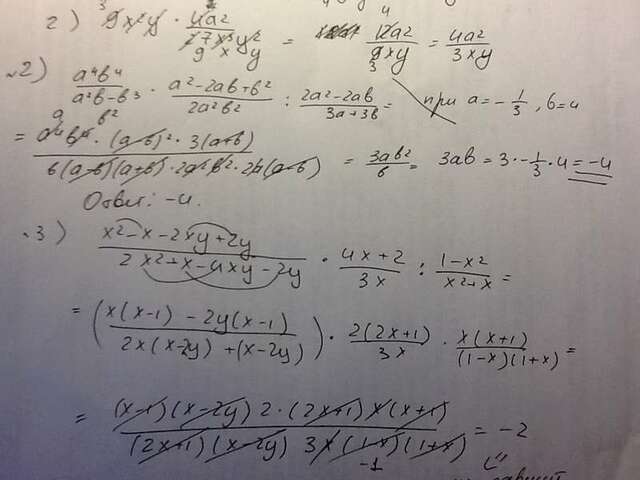 2) 9x²y · 4a² / 27x³y² = 12a² / 9xy = 4a² / 3xy
№2) a⁴b⁴ / a²b-b³ · a²-2ab+b² / 2a²b² : 2a²-2ab / 3a+3b = при a=-1/3, b=4
= a⁴b⁴ · (a-b)² · 3(a+b) / b(a-b)(a+b) · 2a²b² · 2a(a-b) = 3ab² / b = 3ab = 3·-1/3·4 = -4
Ответ: -4.
№3) x²-x-2xy+2y / 2x²+x-4xy-2y · 4x+2 / 3x : 1-x² / x²+x =
= (x(x-1) - 2y(x-1) / 2x(x-2y) + (x-2y)) · 2(2x+1) / 3x · x(x+1) / (1-x)(1+x) =
= (x-1)(x-2y) 2·(2x+1) x(x+1) / (2x+1)(x-2y) 3x(1-x)(1+x) = -2
-1